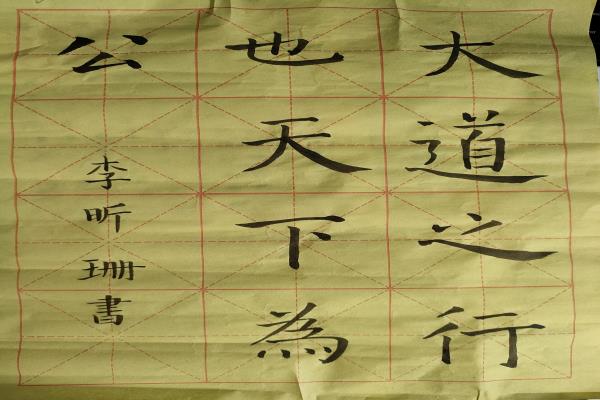 大道之行
也天下為
公
李昕珊書